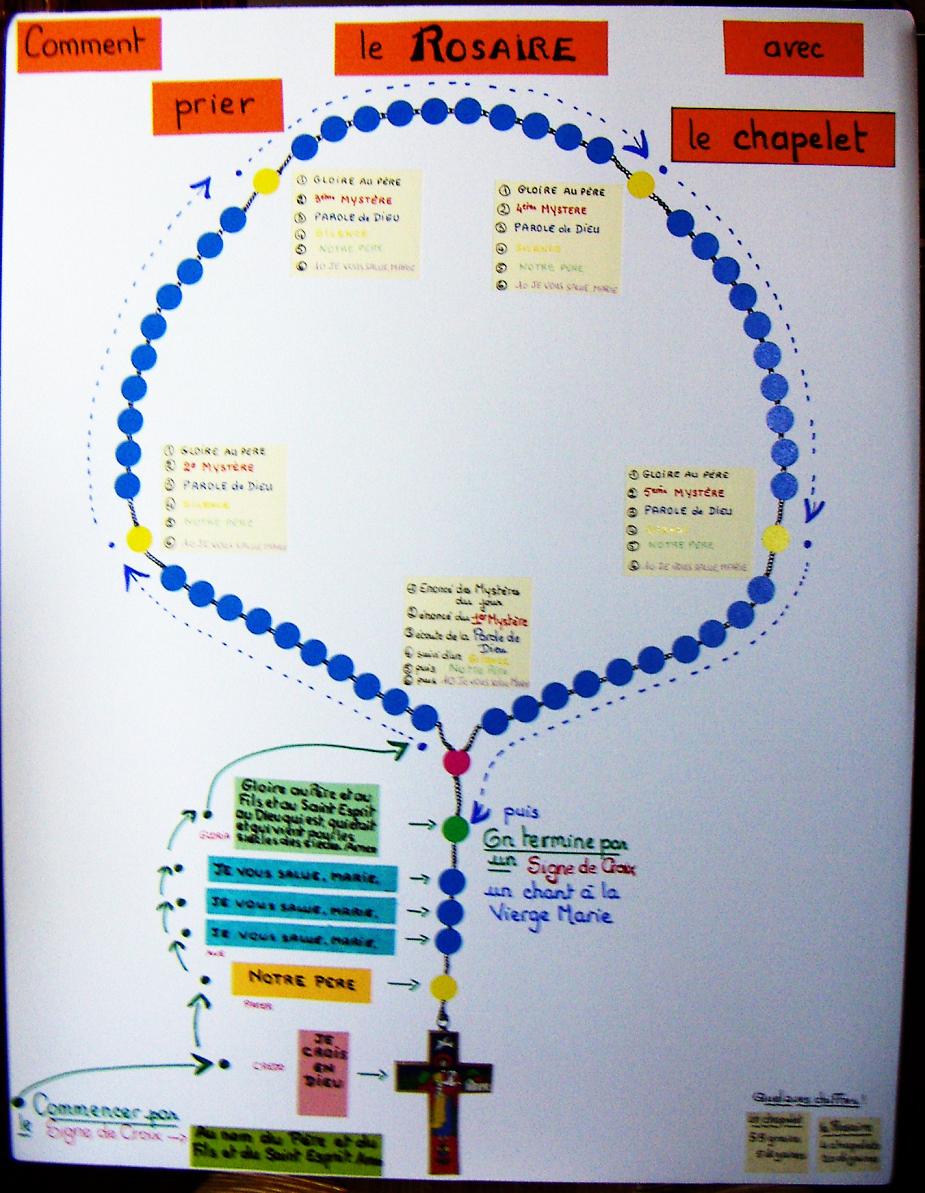 Comment
le ROSAIRE
avec
prier
le chapelet
① GLOIRE AU PÈRE
② 3ème MYSTÈRE
③ PAROLE de DIEU
④ SILENCE
⑤ NOTRE PÈRE
⑥ 10 JE VOUS SALUE, MARIE
① GLOIRE AU PÈRE
② 4ème MYSTERE
③ PAROLE de DIEU
④ SILENCE
⑤ NOTRE PÈRE
⑥ 10 JE VOUS SALUE, MARIE
① GLOIRE AU PÈRE
② 2e MYSTÈRE
③ PAROLE de DIEU
④ SILENCE
⑤ NOTRE PÈRE
⑥ 10 JE VOUS SALUE MARIE
① GLOIRE AU PÈRE
② 5ème MYSTÈRE
③ PAROLE de DIEU
④ SILENCE
⑤ NOTRE PÈRE
⑥ 10 JE VOUS SALUE, MARIE
① Enoncé des Mystères
du jour
② énoncé du 1er Mystère
③ écoute de la Parole de
Dieu
④ suivi d'un Silence
⑤ puis Notre Père
⑥ puis 10 JE VOUS SALUE MARIE
Gloire au Père et au
Fils et au Saint Esprit
au Dieu qui est, qui était
et qui vient pour les
siècles des siècles. Amen
GLORIA
puis
On termine par
un Signe de Croix
un chant à la
Vierge Marie
JE VOUS SALUE, MARIE,
JE VOUS SALUE, MARIE,
JE VOUS SALUE, MARIE,
AVE
NOTRE PERE
PATER
JE
CROIS
EN
DIEU
CREDO
Commencer par
le Signe de Croix
Au nom du Père et du
Fils et du Saint Esprit Amen
Quelques chiffres!
un chapelet
59 grains
5 dizaines
le Rosaire
4 chapelets
20 dizaines